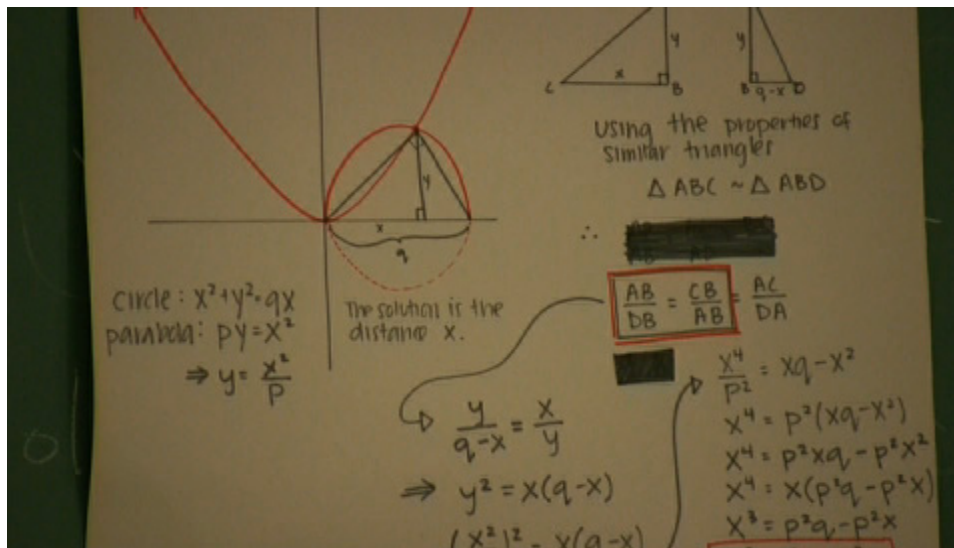 y
x
C
B
y
B
q-x
D
using the properties of
similar triangles
△ ABC ~ △ ABD
y
x
q
∴
AB/DB = CB/AB = AC/DA
circle: x²+y²=qx
parabola: py=x²
⇒ y= x²/p
The solution is the
distance x.
y/(q-x) = x/y
⇒ y² = x(q-x)
(x²)² = x(q-x)
x⁴/p² = xq-x²
x⁴ = p²(xq-x²)
x⁴ = p²xq - p²x²
x⁴ = x(p²q-p²x)
x³ = p²q-p²x